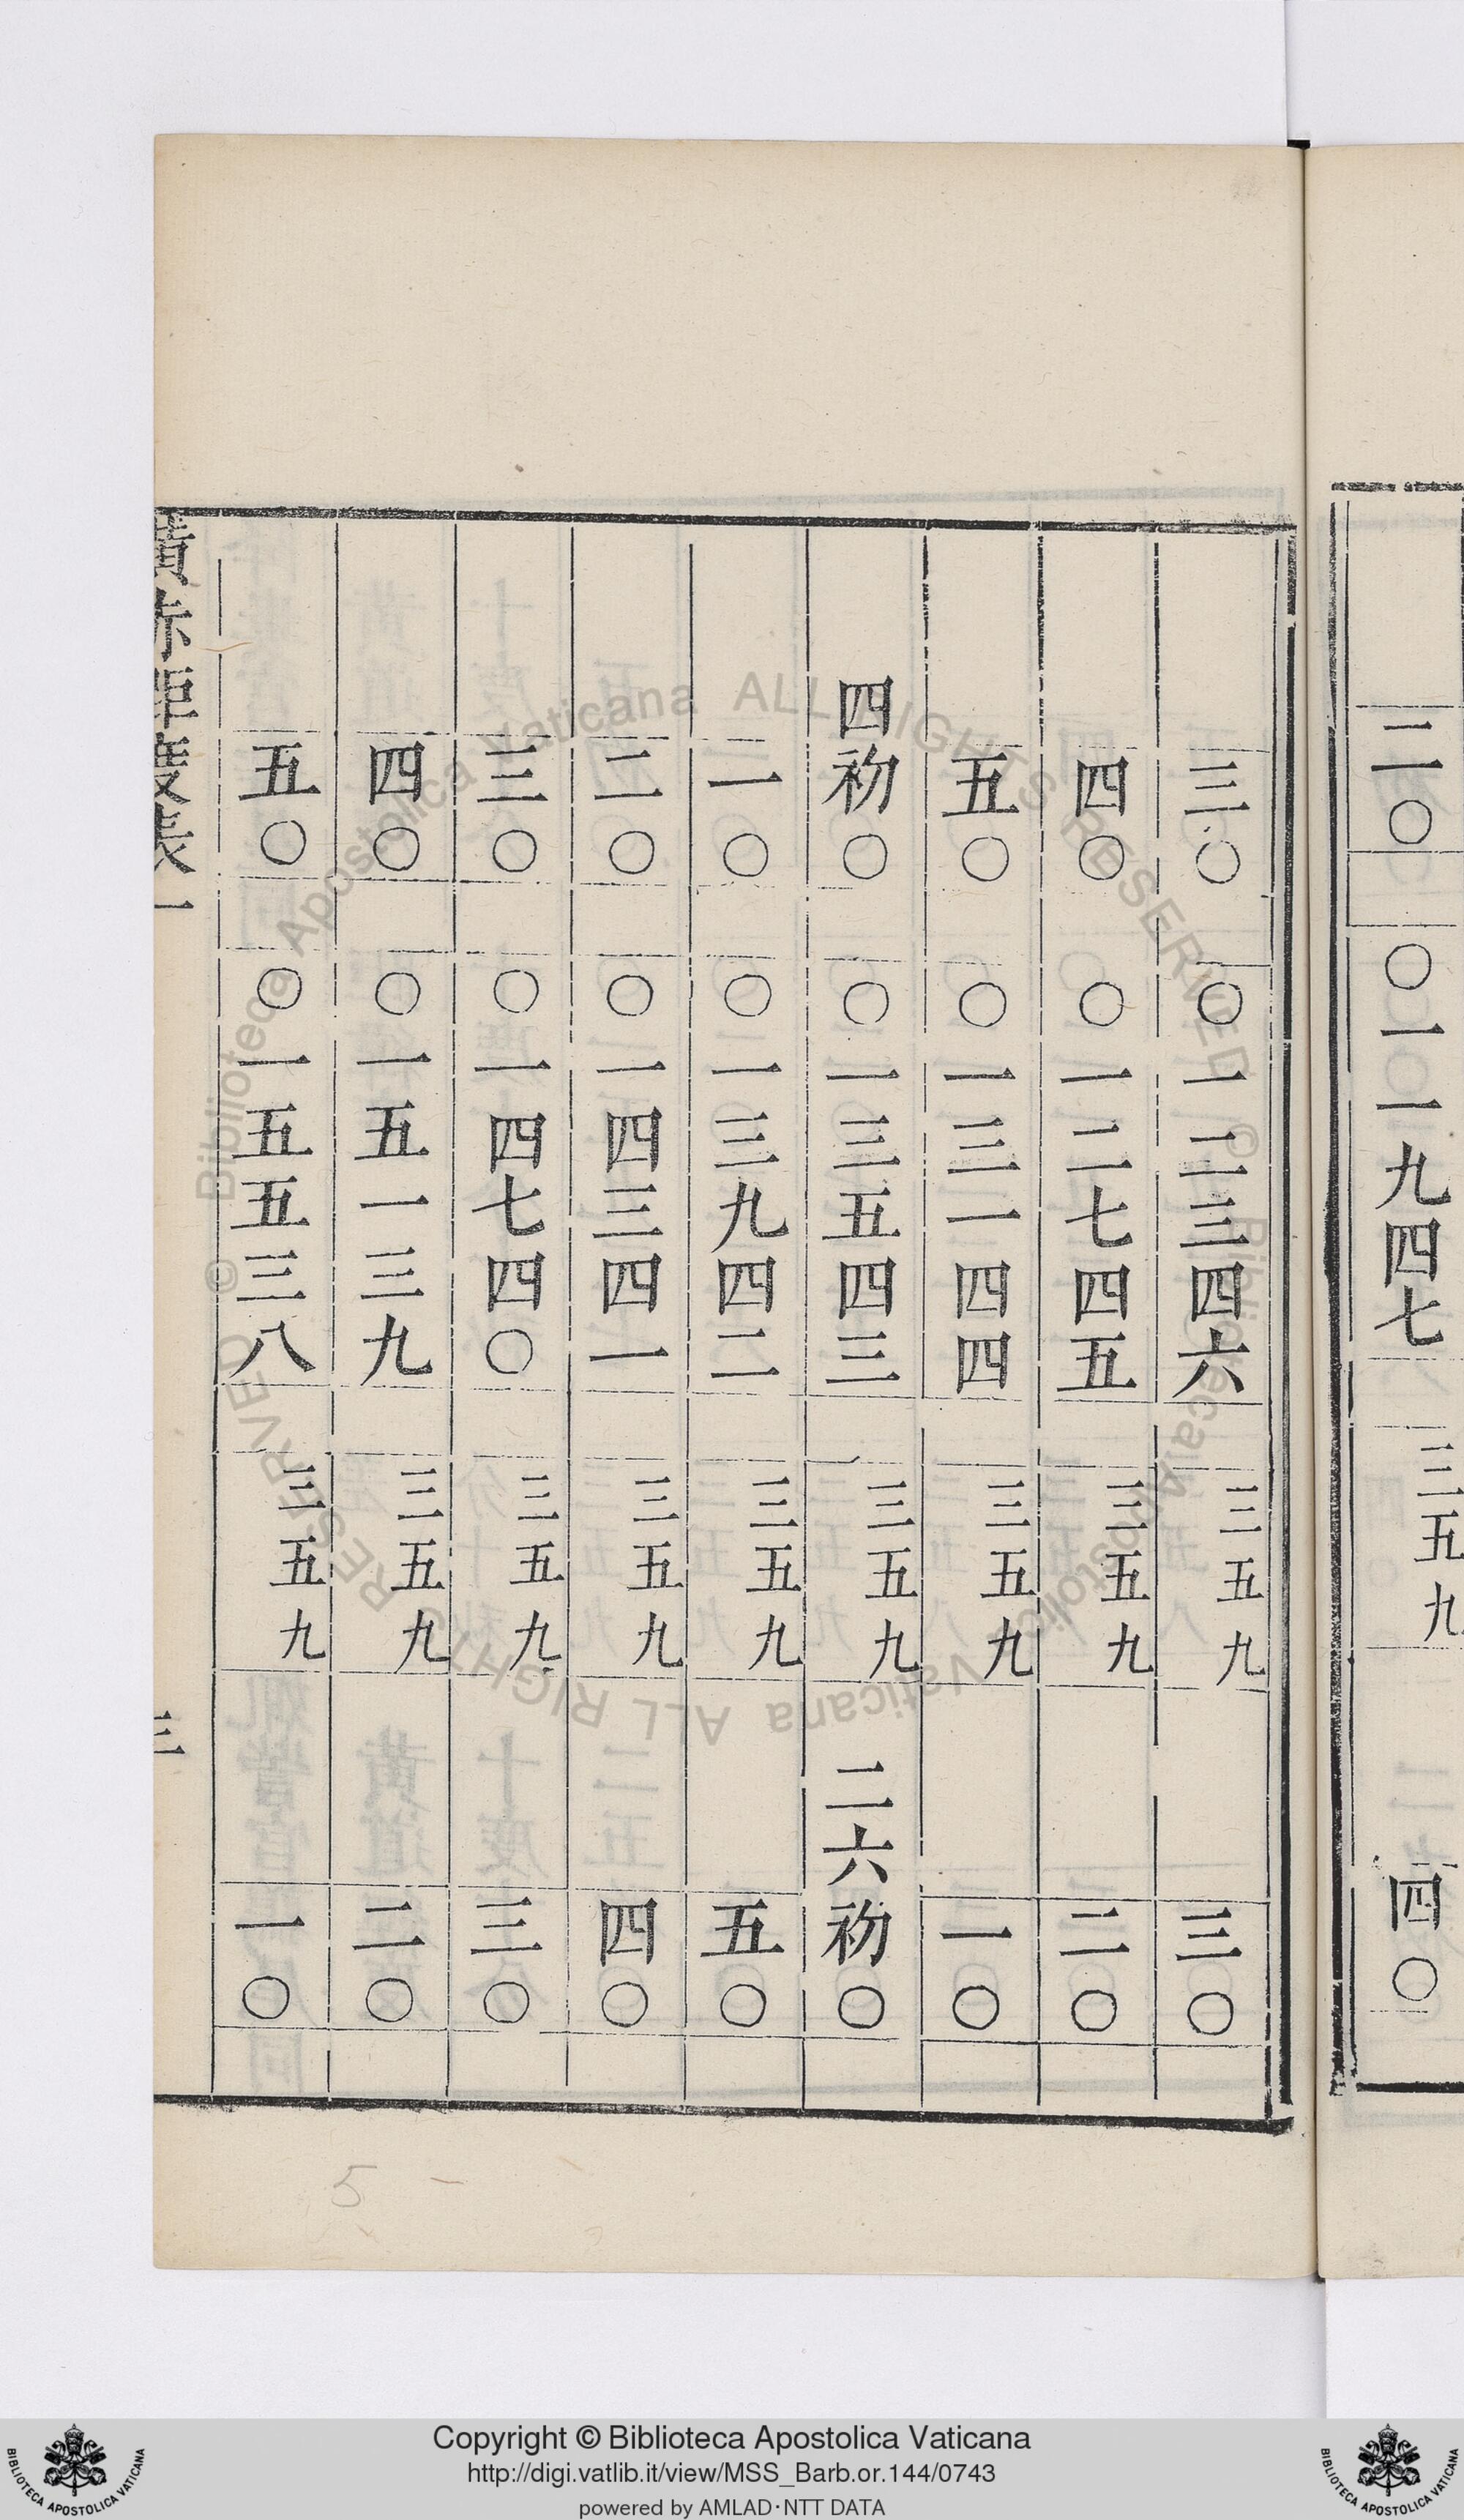 二〇 〇一一九四七 三五九 四〇
三〇 〇一二三四六 三五九 三〇
四〇 〇一二七四五 三五九 二〇
五〇 〇一三一四四 三五九 一〇
四初〇 〇一三五四三 三五九 二六初〇
一〇 〇一三九四二 三五九 五〇
二〇 〇一四三四一 三五九 四〇
三〇 〇一四七四〇 三五九 三〇
四〇 〇一五一三九 三五九 二〇
五〇 〇一五五三八 三五九 一〇
三
5
© Biblioteca Apostolica Vaticana ALL RIGHTS RESERVED
© Biblioteca Apostolica Vaticana ALL RIGHTS RESERVED
Copyright © Biblioteca Apostolica Vaticana
http://digi.vatlib.it/view/MSS_Barb.or.144/0743
powered by AMLAD·NTT DATA
BIBLIOTECA APOSTOLICA VATICANA
BIBLIOTECA APOSTOLICA VATICANA